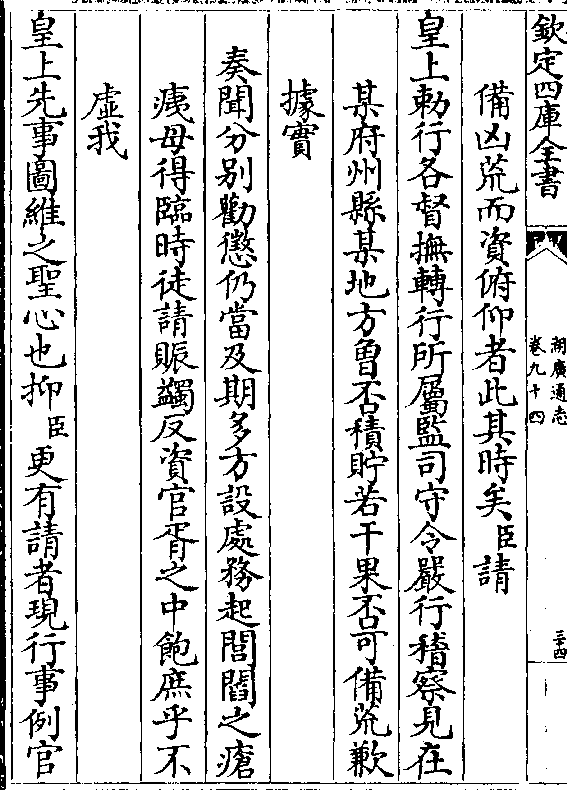 欽定四庫全書
湖廣通志
卷九十四
三十四
備凶荒而資俯仰者此其時矣臣請
皇上勅行各督撫轉行所屬監司守令嚴行稽察見在
某府州縣某地方曾否積貯若干果否可備荒歉
據實
奏聞分别勸懲仍當及期多方設處務起閭閻之瘡
痍毋得臨時徒請賑蠲反資官胥之中飽庶乎不
虛我
皇上先事圖維之聖心也抑臣更有請者現行事例官